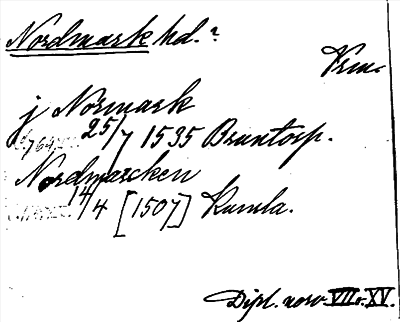 Nordmark hd.?
Vrm.
j Normark
25/7 1535 Bruntorp.
Nordmarcken
14/4 [1507] Kumla.
Dipl. norv. VII o. XV.